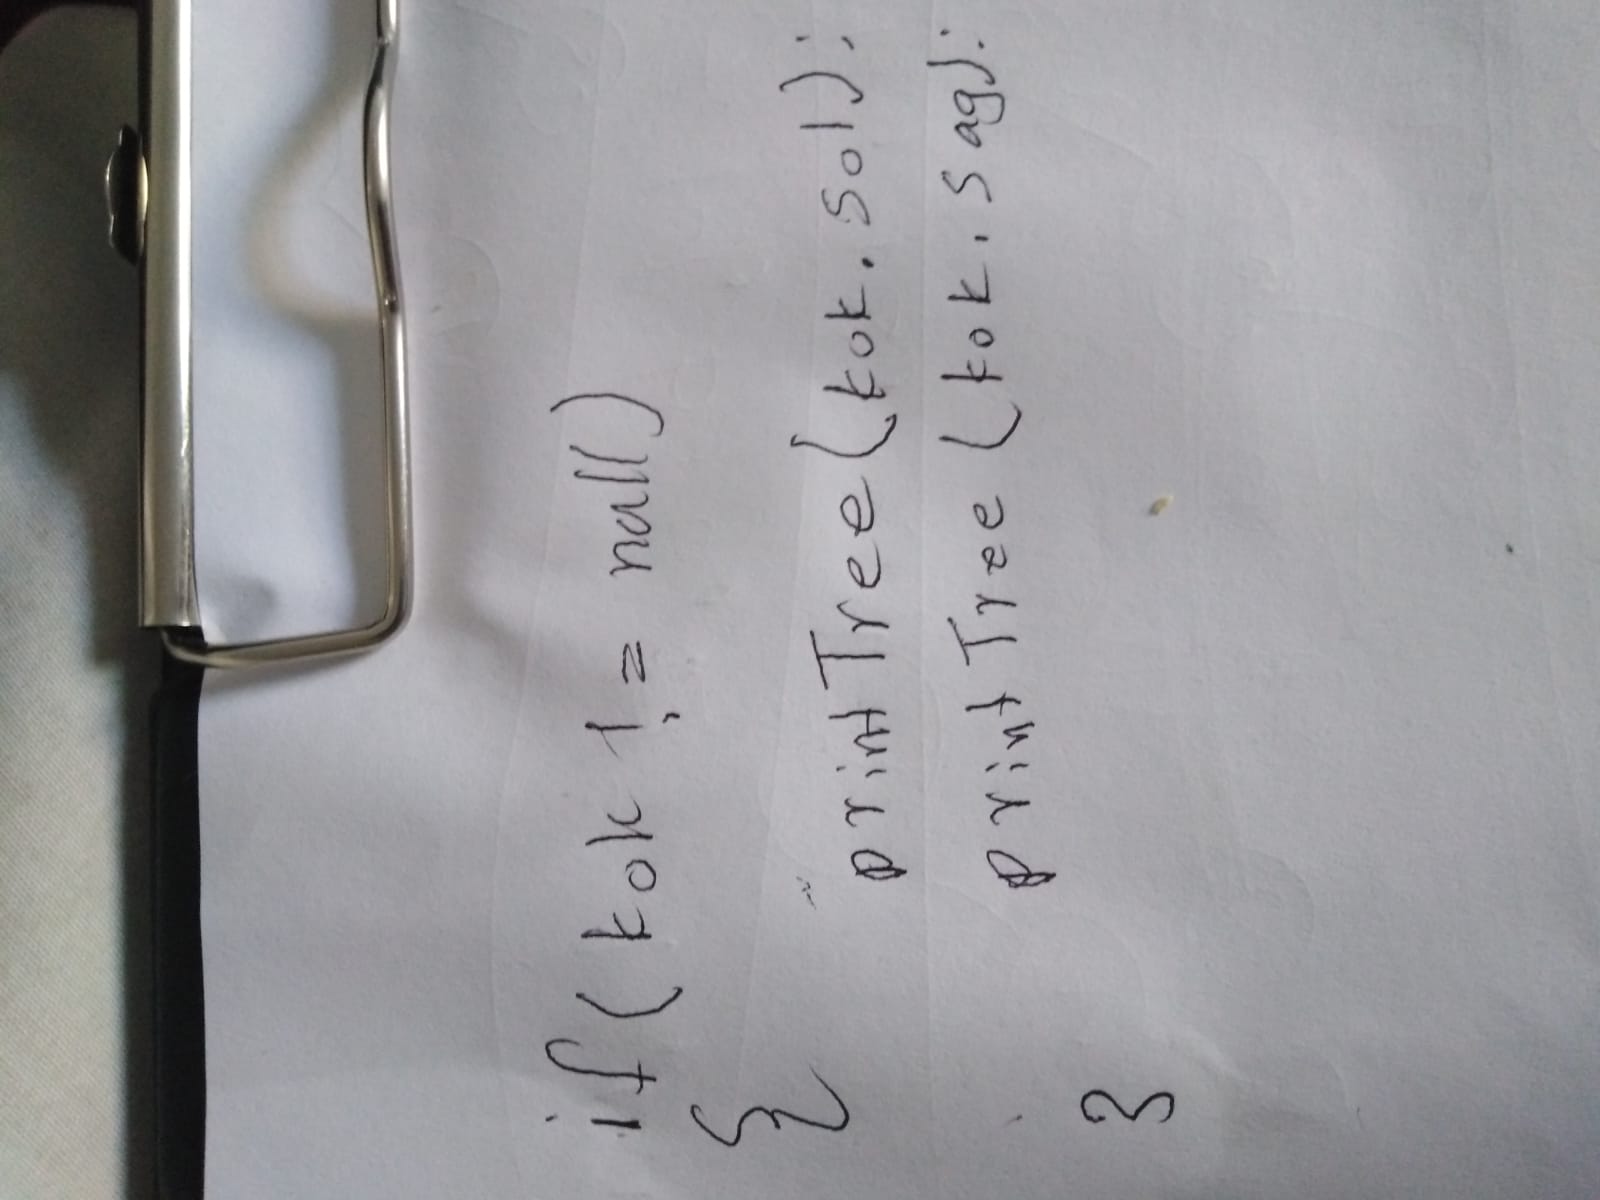 if (kok != null)
{
printTree(kok.sol);
printTree(kok.sag);
}